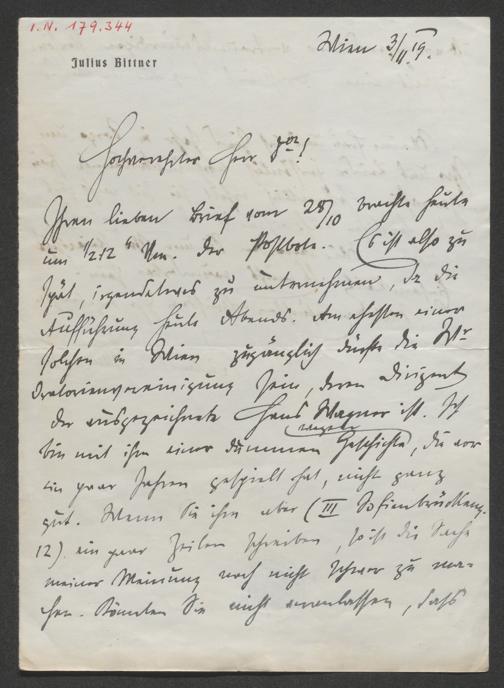 I. N. 179.344
Wien 3/II 19.
Julius Bittner
Hochverehrter Herr
Ihren lieben Brief vom 28/10 brachte heute
um 1/2 12 h Vm. der Postbote. Es ist also zu
spät, irgendetwas zu unternehmen, da die
Aufführung heute Abends. Am ehesten einer
solchen in Wien zugänglich dürfte die Wr
Oratorienvereinigung sein, deren Dirigent
der ausgezeichnete Hans Wagner ist. Ich
bin mit ihm einer dummen Geschichte, die vor
ein paar Jahren gespielt hat, nicht ganz
gut. Wenn Sie ihm aber (III Sofienbrückeng.
12) ein paar Zeilen schreiben, so ist die Sache
meiner Meinung nach nicht schwer zu ma-
chen. Könnten Sie nicht veranlassen, dass